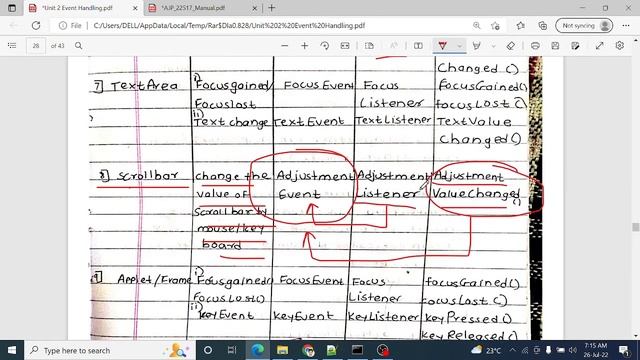 *Unit 2 Event Handling.pdf
*AJP_22517_Manual.pdf
C:/Users/DELL/AppData/Local/Temp/Rar$DIa0.828/Unit%202%20Event%20Handling.pdf
Not syncing
28 of 43
Changed ()
7] TextArea i) Focusgained/ FocusEvent Focus focusGained()
Focuslost Listener focusLost ()
ii) Text change TextEvent TextListener TextValue
Changed ()
8] Scrollbar change the Adjustment Adjustment Adjustment
value of Event Listener ValueChanged
scrollbar by ()
mouse/key
board
9] Applet/Frame i) Focusgained() FocusEvent Focus focusGained()
FocusLost() Listener focusLost ()
ii) keyEvent keyEvent keyListener keyPressed()
keyReleased()
Type here to search
23°C
ENG
7:15 AM
26-Jul-22